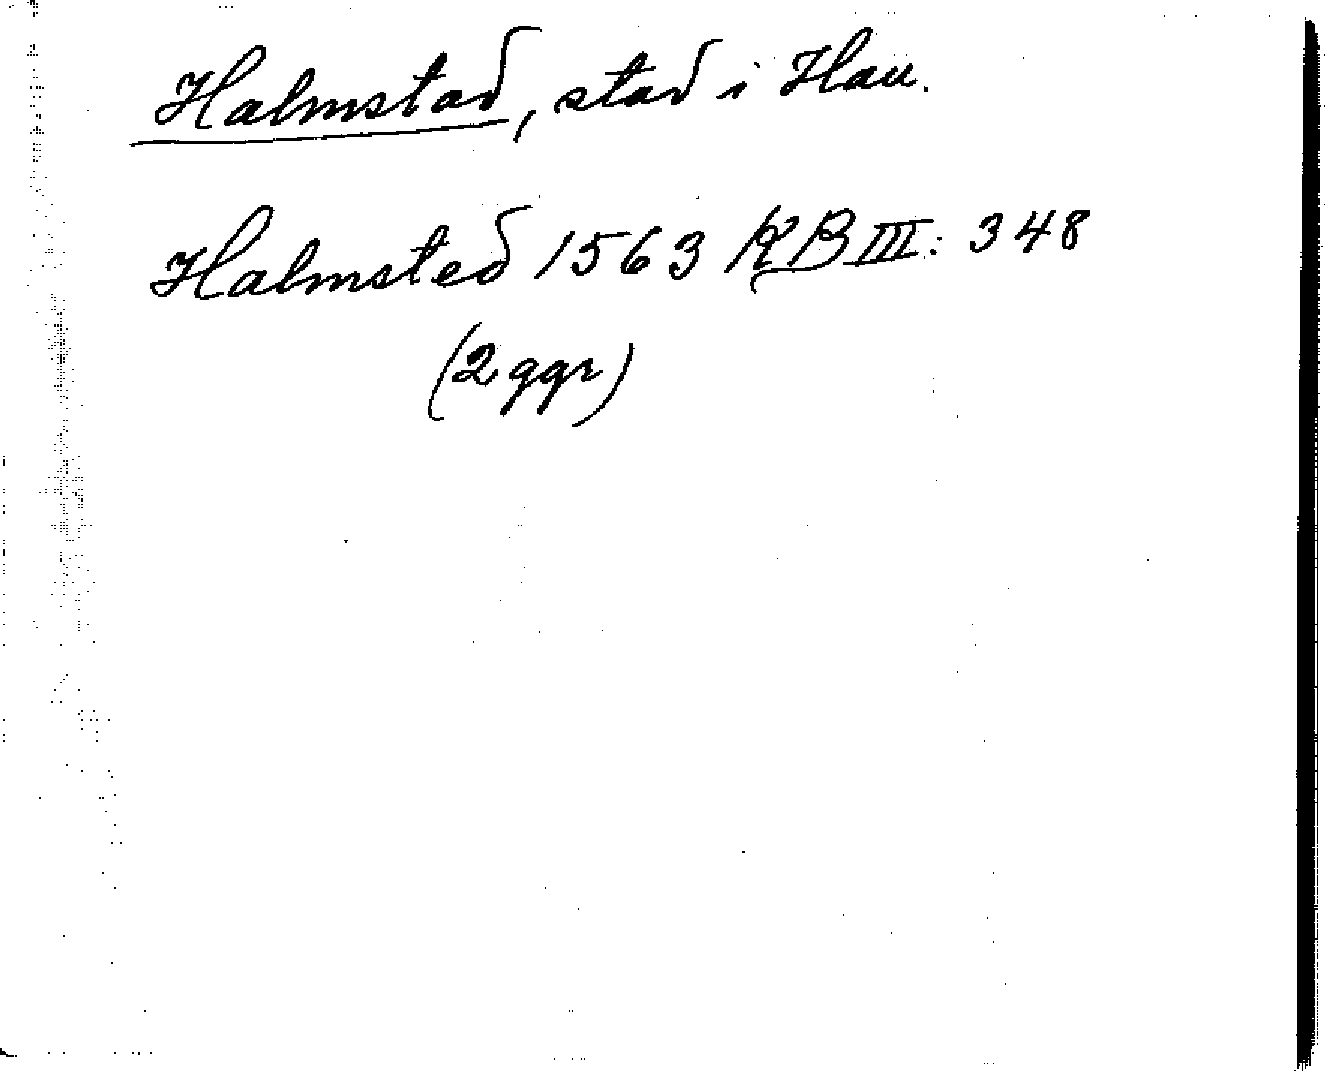 Halmstad, stad i Hall.
Halmsted 1563 KB III: 348
(2 ggr)